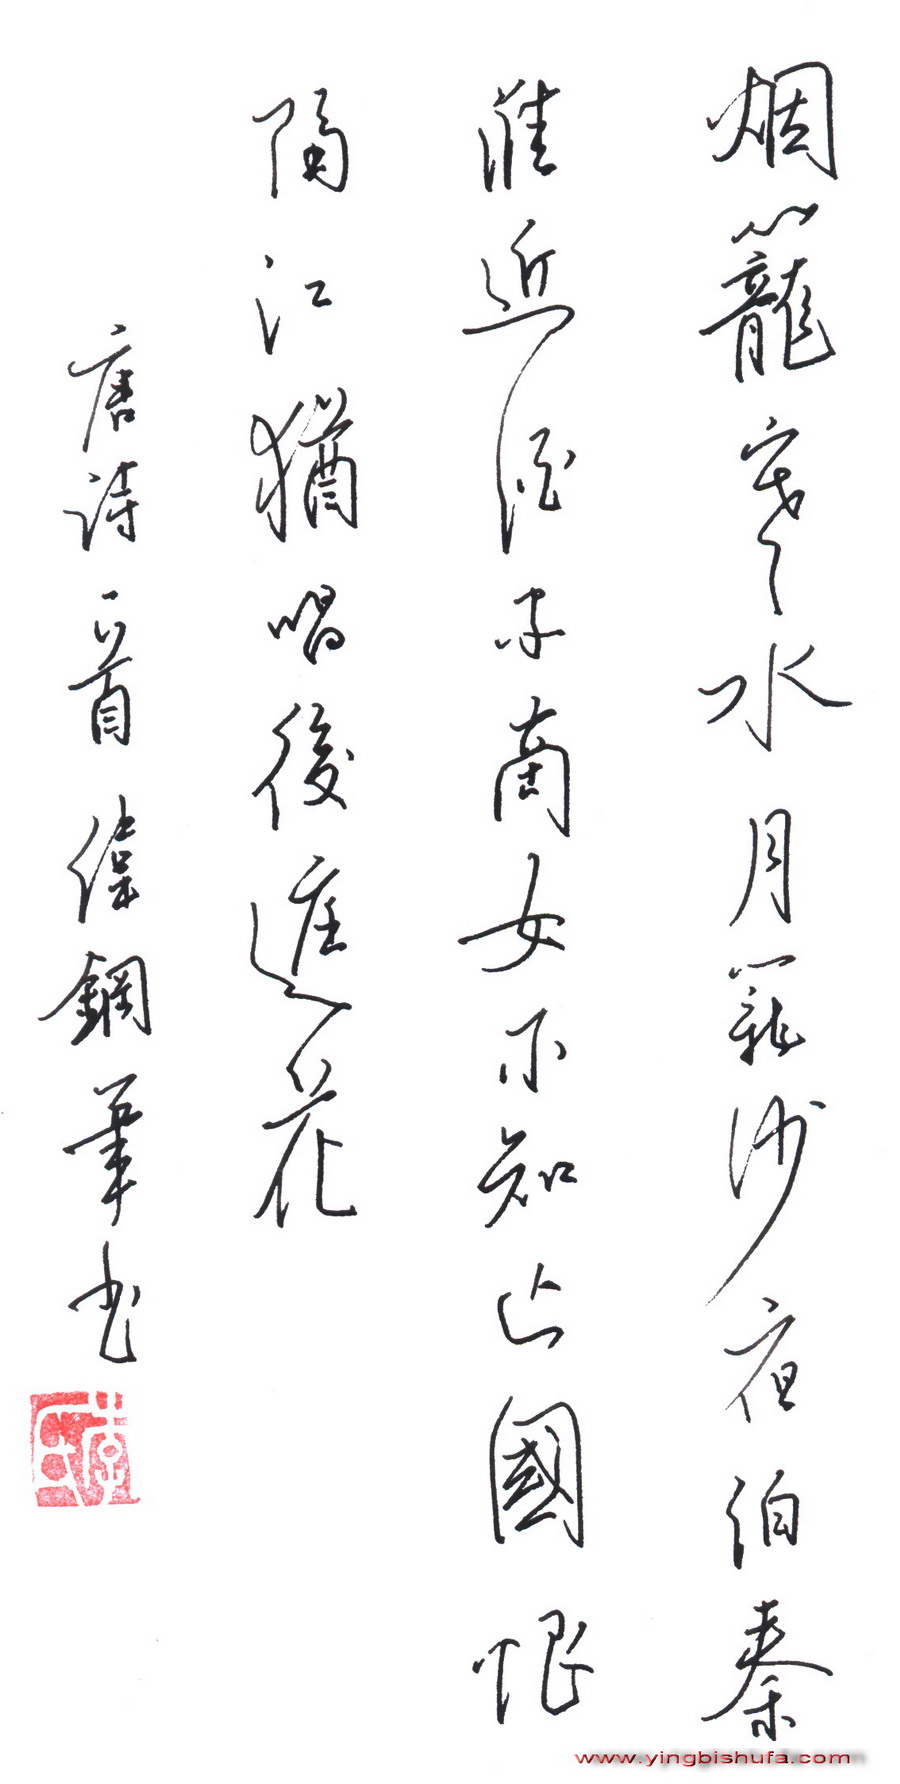 烟籠寒水月籠沙夜泊秦
淮近酒家商女不知亡國恨
隔江猶唱後庭花
唐詩一首偉鋼筆书
www.yingbishufa.com